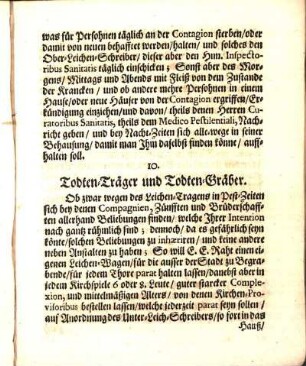 was für Persohnen täglich an der Contagion sterben/oder
damit von neuen behafftet werden/halten/ und solches den
Ober-Leichen-Schreiber/ dieser aber den Hnn. Inspecto-
ribus Sanitatis täglich einschicken; Sonst aber des Mor-
gens/ Mittags und Abends mit Fleiß von dem Zustande
der Krancken/ und ob andere mehre Persohnen in einem
Hause/oder neue Häuser von der Contagion ergriffen/Er-
kündigung einziehen/und davon/ theils denen Herren Cu-
ratoribus Sanitatis, theils dem Medico Pestilentiali, Nach-
richt geben/ und bey Nacht-Zeiten sich alle-wege in seiner
Behausung/ damit man Jhn daselbst finden könne/ auff-
halten soll.
10.
Todten-Träger und Todten-Gräber.
Ob zwar wegen des Leichen-Tragens in Pest-Zeiten
sich bey denen Compagnien, Zünfften und Brüderschaff-
ten allerhand Beliebungen finden/ welche Jhrer Intention
nach gantz rühmlich sind; dennoch/ da es gefährlich seyn
könte/solchen Beliebungen zu inhæriren/ und keine andere
neben Anstalten zu haben; So will E. E. Raht einen ei-
genen Leichen-Wagen/ für die ausser der Stadt zu Begra-
bende/für jedem Thore parat halten lassen/ danebst aber in
jedem Kirchspiele 6 oder 8. Leute/ guter starcker Comple-
xion, und mittelmäßigen Alters/ von denen Kirchen-Pro-
visoribus bestellen lassen/welche jederzeit parat seyn sollen/
auf Anordnung des Unter-Leich-Schreibers/so fort in das
Hauß/